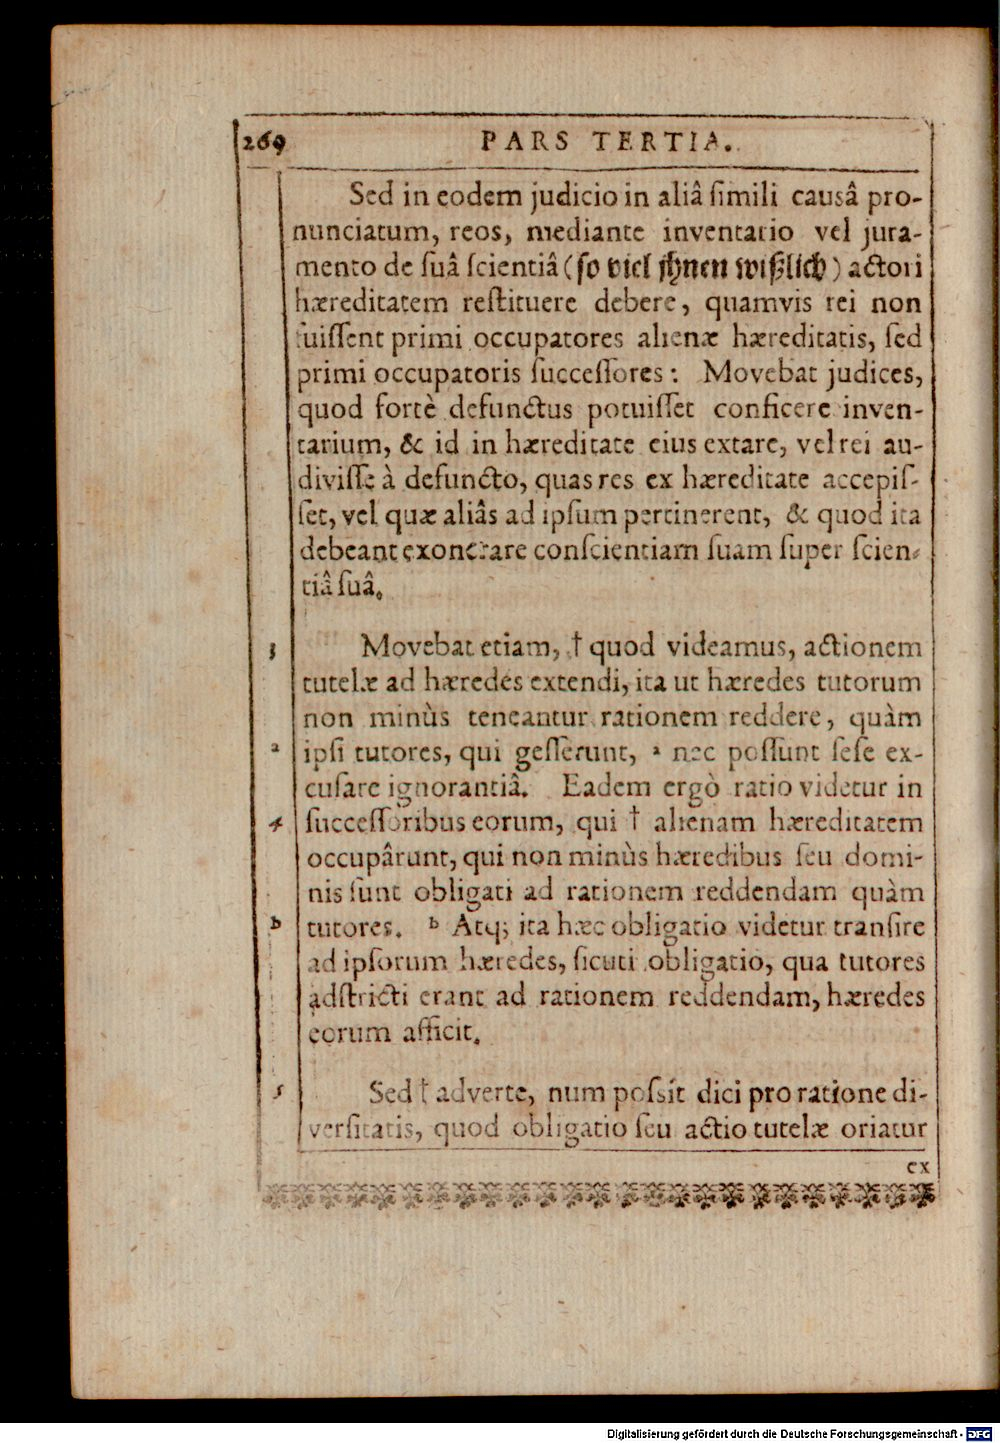 269 PARS TERTIA.
Sed in eodem judicio in aliâ simili causâ pro-
nunciatum, reos, mediante inventario vel jura-
mento de suâ scientiâ (so viel jhnen wißlich) actori
hæreditatem restituere debere, quamvis rei non
fuissent primi occupatores alienæ hæreditatis, sed
primi occupatoris successores: Movebat judices,
quod fortè defunctus potuisset conficere inven-
tarium, & id in hæreditate eius extare, vel rei au-
divisse à defuncto, quas res ex hæreditate accepis-
set, vel quæ aliâs ad ipsum pertinerent, & quod ita
debeant exonerare conscientiam suam super scien-
tiâ suâ.
3 Movebat etiam, † quod videamus, actionem
tutelæ ad hæredes extendi, ita ut hæredes tutorum
non minùs teneantur rationem reddere, quàm
a ipsi tutores, qui gesserunt, a nec possunt sese ex-
cusare ignorantiâ. Eadem ergò ratio videtur in
4 successoribus eorum, qui † alienam hæreditatem
occupârunt, qui non minùs hæredibus seu domi-
nis sunt obligati ad rationem reddendam quàm
b tutores. b Atq; ita hæc obligatio videtur transire
ad ipsorum hæredes, sicuti obligatio, qua tutores
adstricti erant ad rationem reddendam, hæredes
eorum afficit.
5 Sed † adverte, num possit dici pro ratione di-
versitatis, quod obligatio seu actio tutelæ oriatur
ex
Digitalisierung gefördert durch die Deutsche Forschungsgemeinschaft - DFG